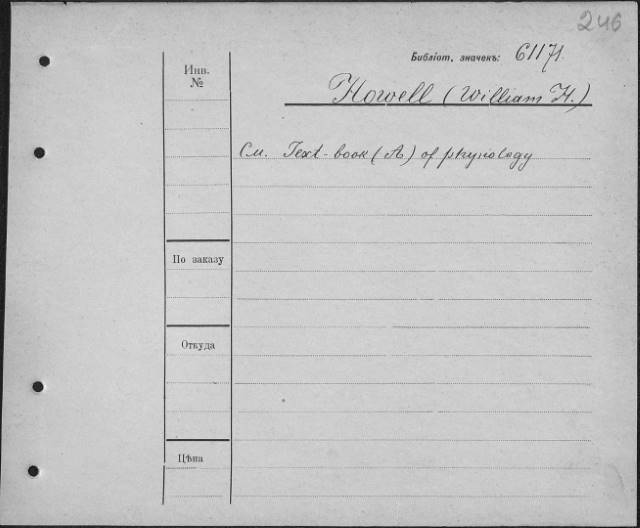 246
Библіот. значекъ: 61171.
Инв.
№
Howell (William H.)
См. Text-book (A) of physiology
По заказу
Откуда
Цѣна